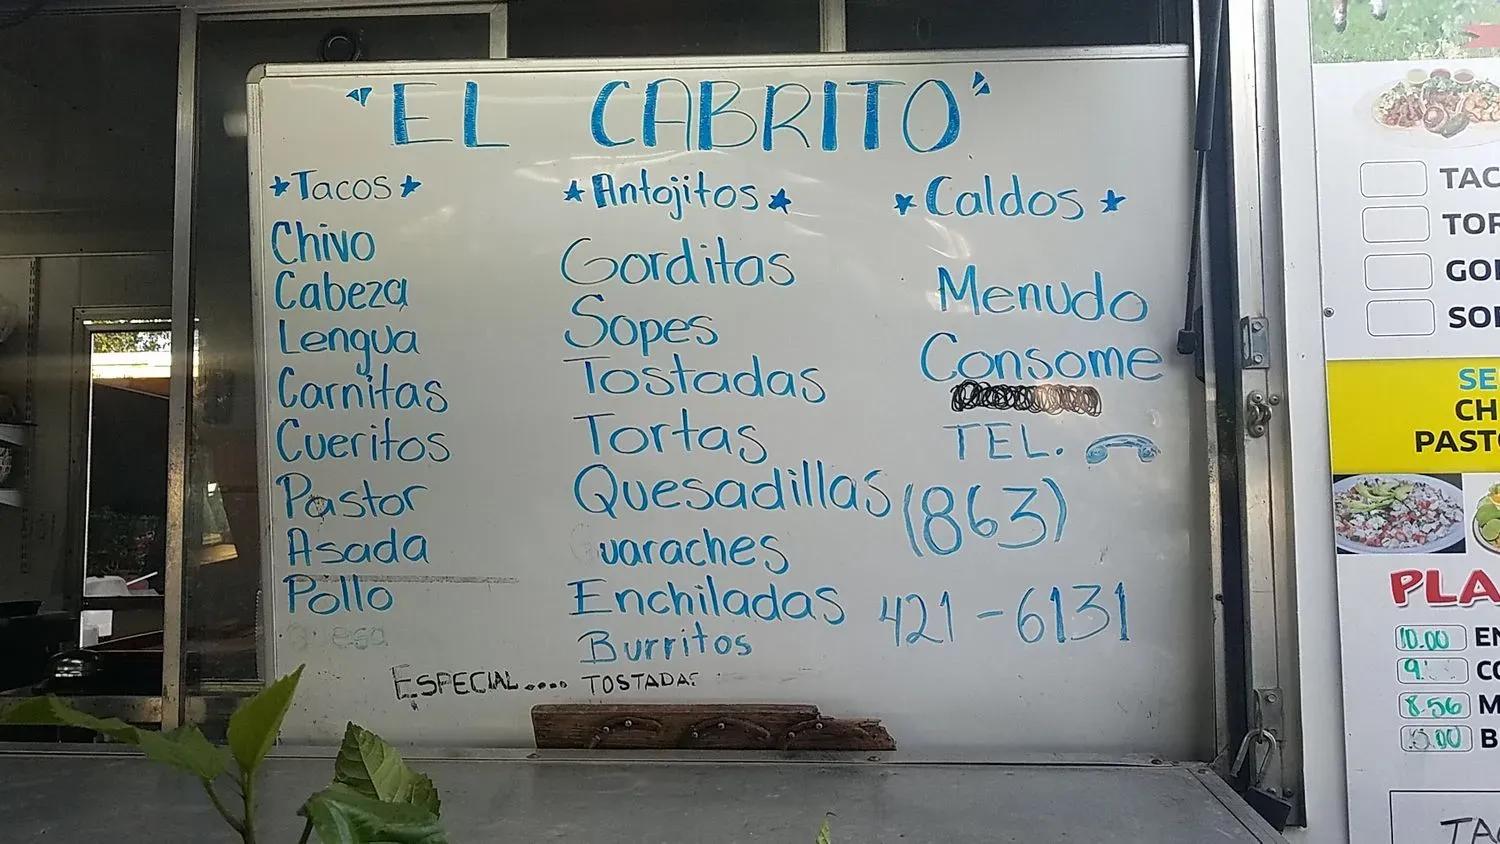 "EL CABRITO"
★Tacos★
Chivo
Cabeza
Lengua
Carnitas
Cueritos
Pastor
Asada
Pollo
★Antojitos★
Gorditas
Sopes
Tostadas
Tortas
Quesadillas
uaraches
Enchiladas
Burritos
★Caldos★
Menudo
Consome
TEL.
(863)
421-6131
ESPECIAL.... TOSTADAS
TAC
TOR
GO
SO
SE
CH
PAST
PLA
10.00 EN
9. CO
8.56 M
B
TA